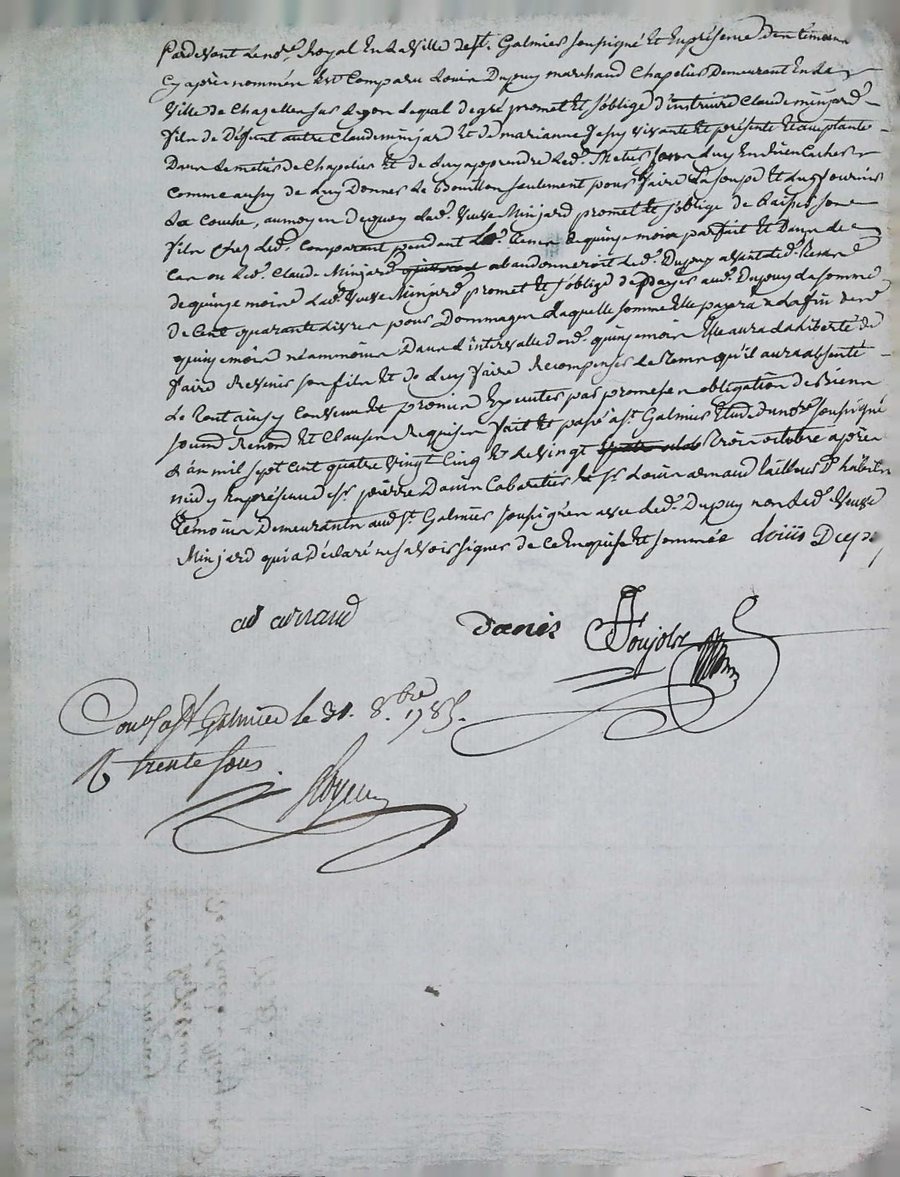 Pardevant le no.re Royal En la Ville de St. Galmier soussigné Et En présence des témoins
Cy après nommés Est Comparu Louis Dupuy marchand Chapelier Demeurant En la
Ville de Chazelles sur Lyon Lequel de gré promet Et s'oblige d'instruire Claude minjard
fils de Deffunt autre Claude minjard Et de marianne vivante Et présente Et acceptante
Dans le metier de Chapelier Et de luy apprendre led.t Metier sans luy En rien Cacher
Comme aussy de luy Donner le Bouillon seulement pour faire La soupe Et luy fournir
La Couche, au moyen de quoy lad.e Veuve Minjard promet Et s'oblige de laisser son
fils Chez led.t Comparant pendant le tems de quinze mois parfait Et Dans le
Cas ou led.t Claude Minjard abandonneroit led.t Dupuy avant led.t terme
de quinze mois lad.e Veuve Minjard promet Et s'oblige de payer aud.t Dupuy la somme
de Cent quarante livres pour Dommages Laquelle somme Elle payera a la fin desd.
quinze mois néammoins Dans l'intervalle desd. quinze mois Elle aura la liberté de
faire Revenir son fils Et de luy faire Recompenser le tems qu'il aura absenté
Le tout ainsy Convenu Et promis Executer par promesse obligation de Biens
soumis Renond Et Clauses Requises fait Et passé a St. Galmier Etude du no.re soussigné
L'an mil sept cent quatre vingt Cinq Et le vingt trois octobre après
midy En présence de sr. pierre Danis Cabaretier Et sr. Louis arnaud tailleur D'habits
témoins Demeurants aud. St. Galmier soussignés avec led.t Dupuy non lad.e Veuve
Minjard qui a Déclaré ne savoir signer de ce Enquise Et sommée Louis Dupuy
arnaud Danis Poujolz
Con.lé a St Galmier le 31. 8.bre 1785.
R trente sous.